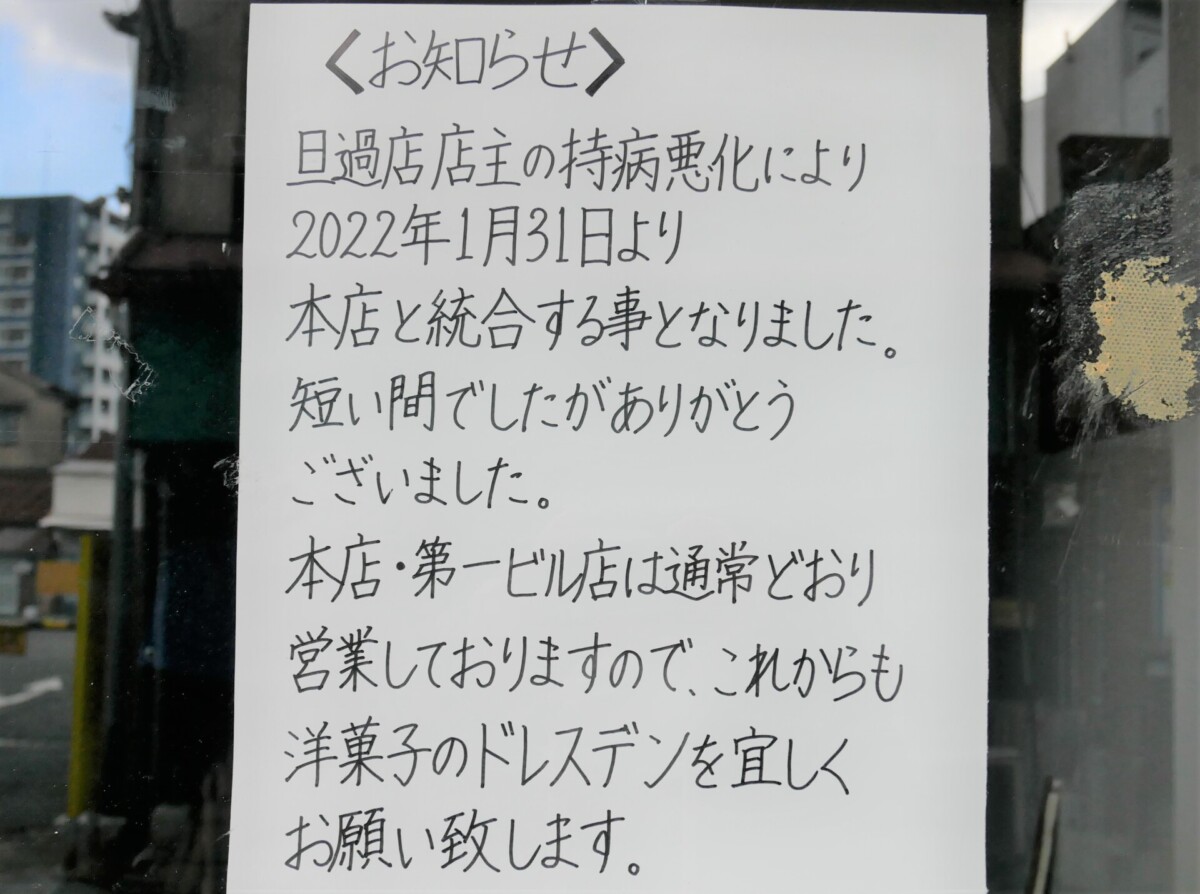 〈お知らせ〉
旦過店店主の持病悪化により
2022年1月31日より
本店と統合する事となりました。
短い間でしたがありがとう
ございました。
本店・第一ビル店は通常どおり
営業しておりますので、これからも
洋菓子のドレスデンを宜しく
お願い致します。